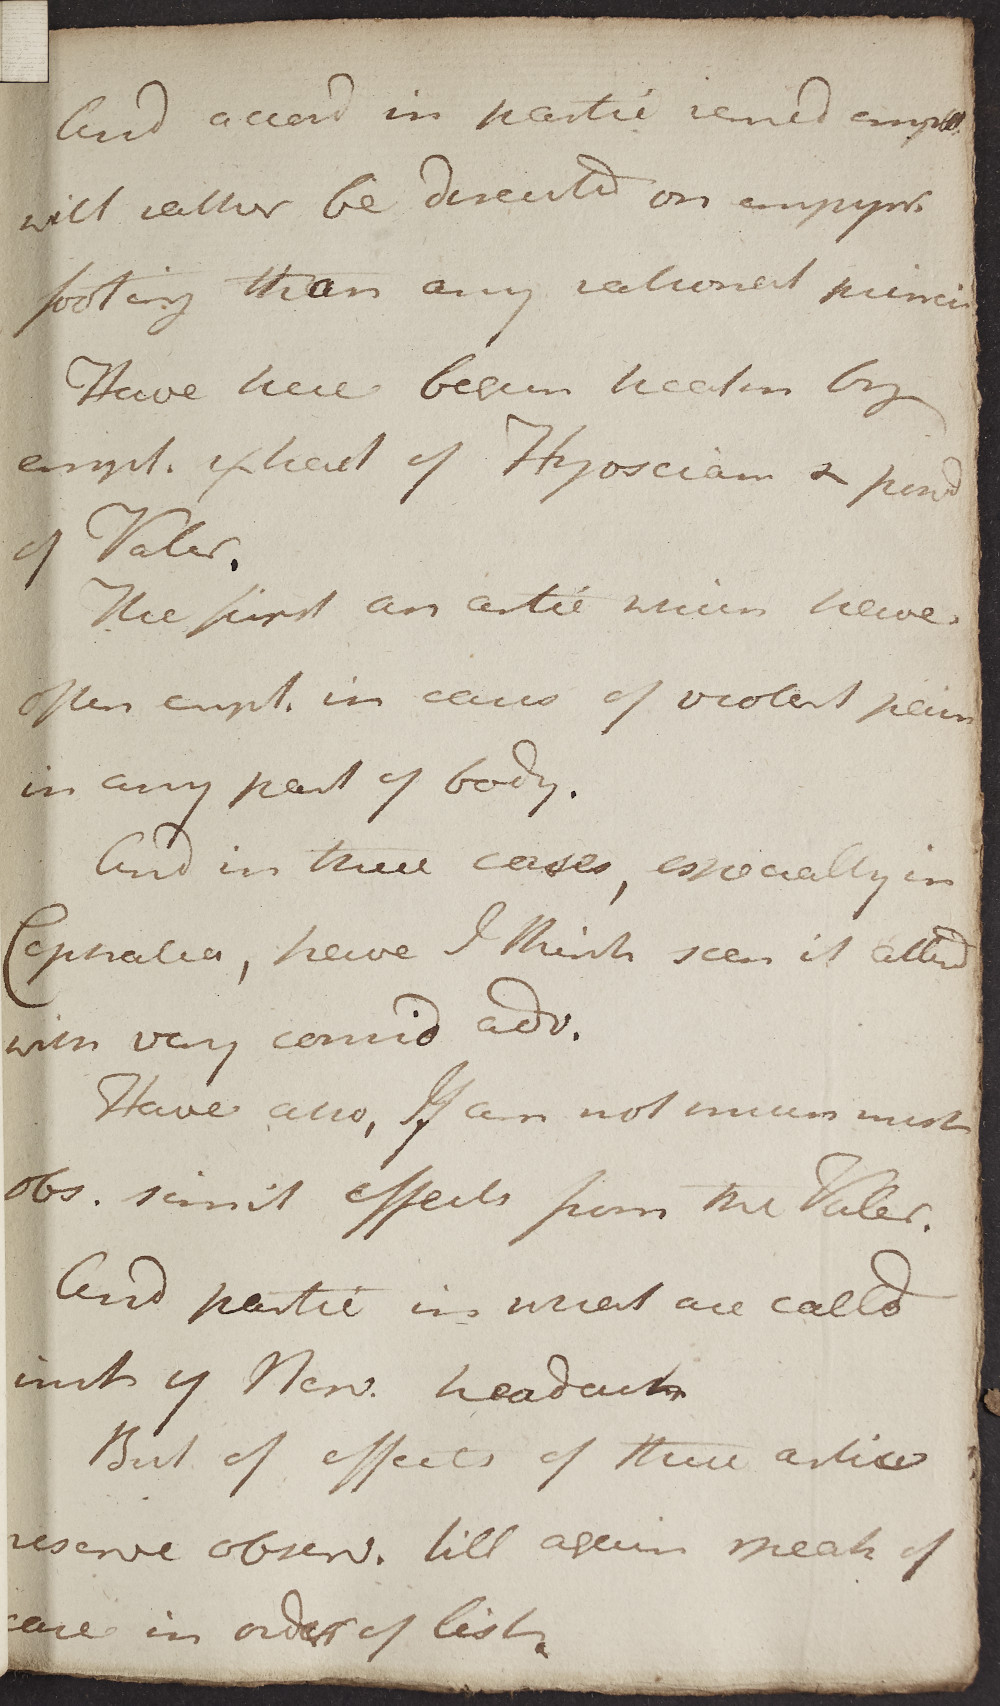 And accord in partic remed empl
will rather be directd on empyr.
footing than any rational princi
Have here begun treatm by
empl. extract of Hyosciam & powd
of Valer.
The first an artic which have
often empl. in cases of violent pain
in any part of body.
And in these cases, especially in
Cephalea, have I think seen it attend
with very consid adv.
Have also, If am not much mist
obs. simil effects from the Valer.
And partic in what are calld
inst of Nerv. headach
But of effects of these artics
reserve observ. till again speak of
case in order of list.